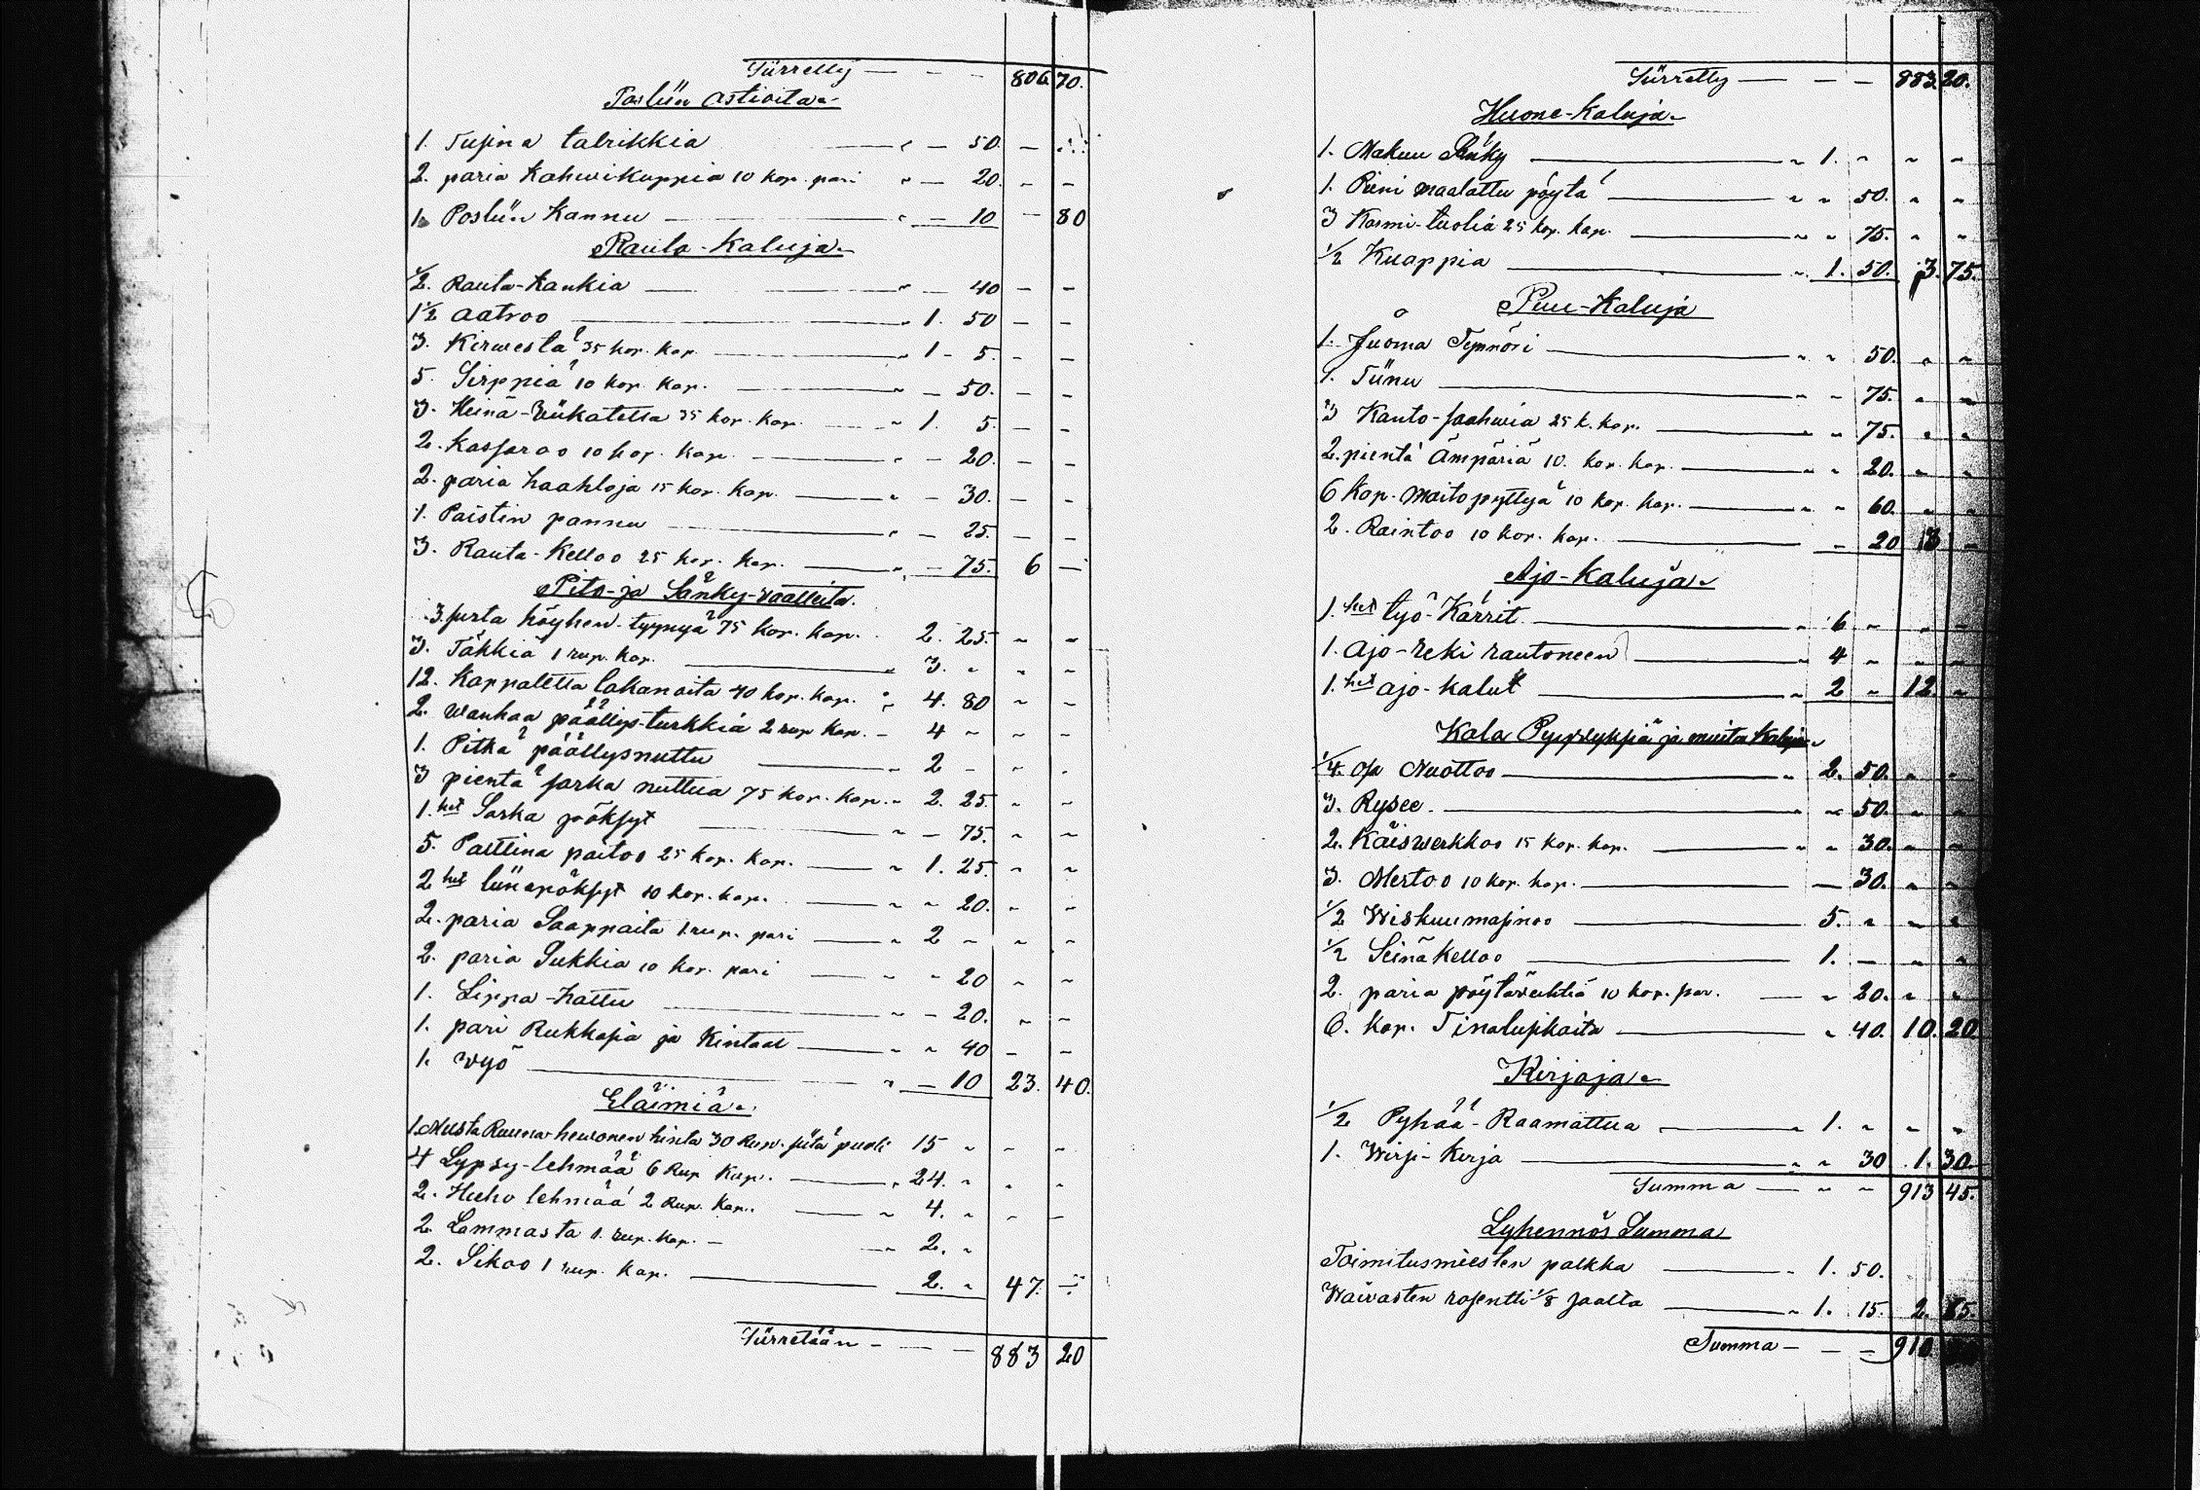 Siirretty — — — 806 70.
Posliin astioita.
1. Tusina talrikkia „ — 50. — „
2. paria Kahwikuppia 10 kop. pari „ — 20. — —
1. Posliin Kannu — „ — 10 — 80
Rauta-Kaluja.
1/2. Rauta-Kankia — „ — 40 — —
1 1/2 aatroo — „ 1. 50 — —
3. Kirwestä 35 kop. kap. — „ 1 — 5. — —
5. Sirppiä 10 kop. kap. — „ — 50. — —
3. Heinä-Wiikatetta 35 kop. kap. — „ 1. 5. — —
2. Kassaroo 10 kop. kap. — „ — 20. — —
2. paria haahloja 15 kop. kap. — „ — 30. — —
1. Paistin pannu — „ — 25. — —
3. Rauta-Kelloo 25 kop. kap. — „ — 75. 6 —
Pito- ja Sänky-waatteita.
3. surta höyhen-tyynyä 75 kop. kap. 2. 25. „ „
3. Täkkiä 1 rup. kap. — „ 3. „ „ „
12. Kappaletta lakanoita 40 kop. kap. „ 4. 80 „ „
2. wanhaa päällys-turkkia 2 rup kap. — 4 „ „ „
1. Pitkä päällysnuttu — „ 2 — „ „
3 pientä sarka nuttua 75 kop. kap. „ 2. 25. „ „
1. het Sarka pöksyt — „ — 75. „ „
5. Palttina paitoo 25 kop. kap. — „ 1. 25. „ „
2 het liinapöksyt 10 kop. kap. — „ „ 20. „ „
2. paria Saappaita 1 rup. pari — „ 2 — „ „
2. paria Sukkia 10 kop. pari — „ „ 20 „ „
1. Lippa-hattu — „ — 20. „ „
1. pari Rukkasia ja Kintaat — „ „ 40 — —
1. wyö — „ — 10 23. 40.
Eläimiä.
1. Musta Ruuna-hewonen hinta 30 Rup. siitä puoli 15 „ — —
4 Lypsy-lehmää 6 Rup kap. — „ 24. „ „ „
2. Hieho lehmää 2 Rup. kap. — „ 4. „ — —
2. Lammasta 1. rup. kap. — „ 2. „
2. Sikoo 1 rup. kap. — 2. „ 47. —
Siirretään — — — 883 20
Siirretty — — — 883. 20.
Huone-Kaluja.
1. Makuu Sänky — „ 1. „ „ „
1. Pieni maalattu pöytä — „ „ 50. „ „
3 Karmi-tuolia 25 kop. kap. — „ „ 75. „ „
1/2 Kuappia — „ 1. 50. 3. 75.
Puu-Kaluja
1. Juoma Tynnöri — „ „ 50. „ „
1. Tiinu — „ „ 75. „ „
3 Kanto-saahwia 25 k. kap. — „ „ 75. „ „
2. pientä ämpäriä 10. kop. kap. — „ „ 20. „ „
6 Kap. maitopyttyä 10 kop. kap. — „ „ 60. „ „
2. Raintoo 10 kop. kap. — — 20 3 —
Ajo-kaluja.
1. het työ-Kärrit — „ 6 „ „ „
1. ajo-reki rautoneen — „ 4 „ „ „
1. het ajo-kalut — „ 2 „ 12. „
Kala Pyydyksiä ja muita kaluja.
1/4. osa Nuottoo — „ 2. 50. „ „
3. Rysee. — „ „ 50. „ „
2. Käiswerkkoo 15 kop. kap. — „ „ 30. „ „
3. Mertoo 10 kop. kap. — — 30. „ „
1/2 Wiskuumasinoo — 5. „ „ „
1/2 Seinäkelloo — 1. — „ „
2. paria pöytäweihtiä 10 kop. par. — „ 20. „ „
6. kap. Tinalusikaita — „ 40. 10. 20
Kirjoja.
1/2 Pyhää-Raamattua — „ 1. „ „ „
1. Wirsi-Kirja — „ „ 30 1. 30
Summa — „ „ 913 45.
Lyhennös Summa
Toimitusmiesten palkka — „ 1. 50.
Waiwasten rosentti 1/8 saalta — „ 1. 15. 2. 65.
Summa — — — 910